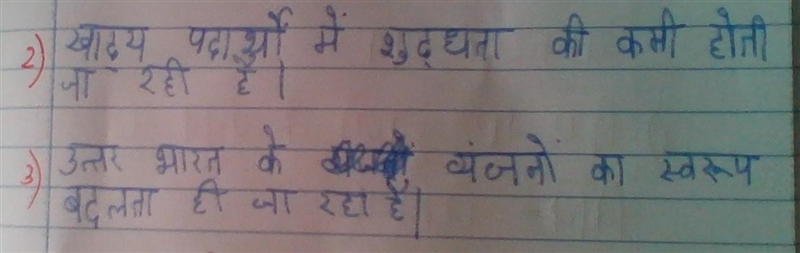 2) खाद्य पदार्थों में शुद्धता की कमी होती
जा रही है।
3) उत्तर भारत के व्यंजनों का स्वरूप
बदलता ही जा रहा है।